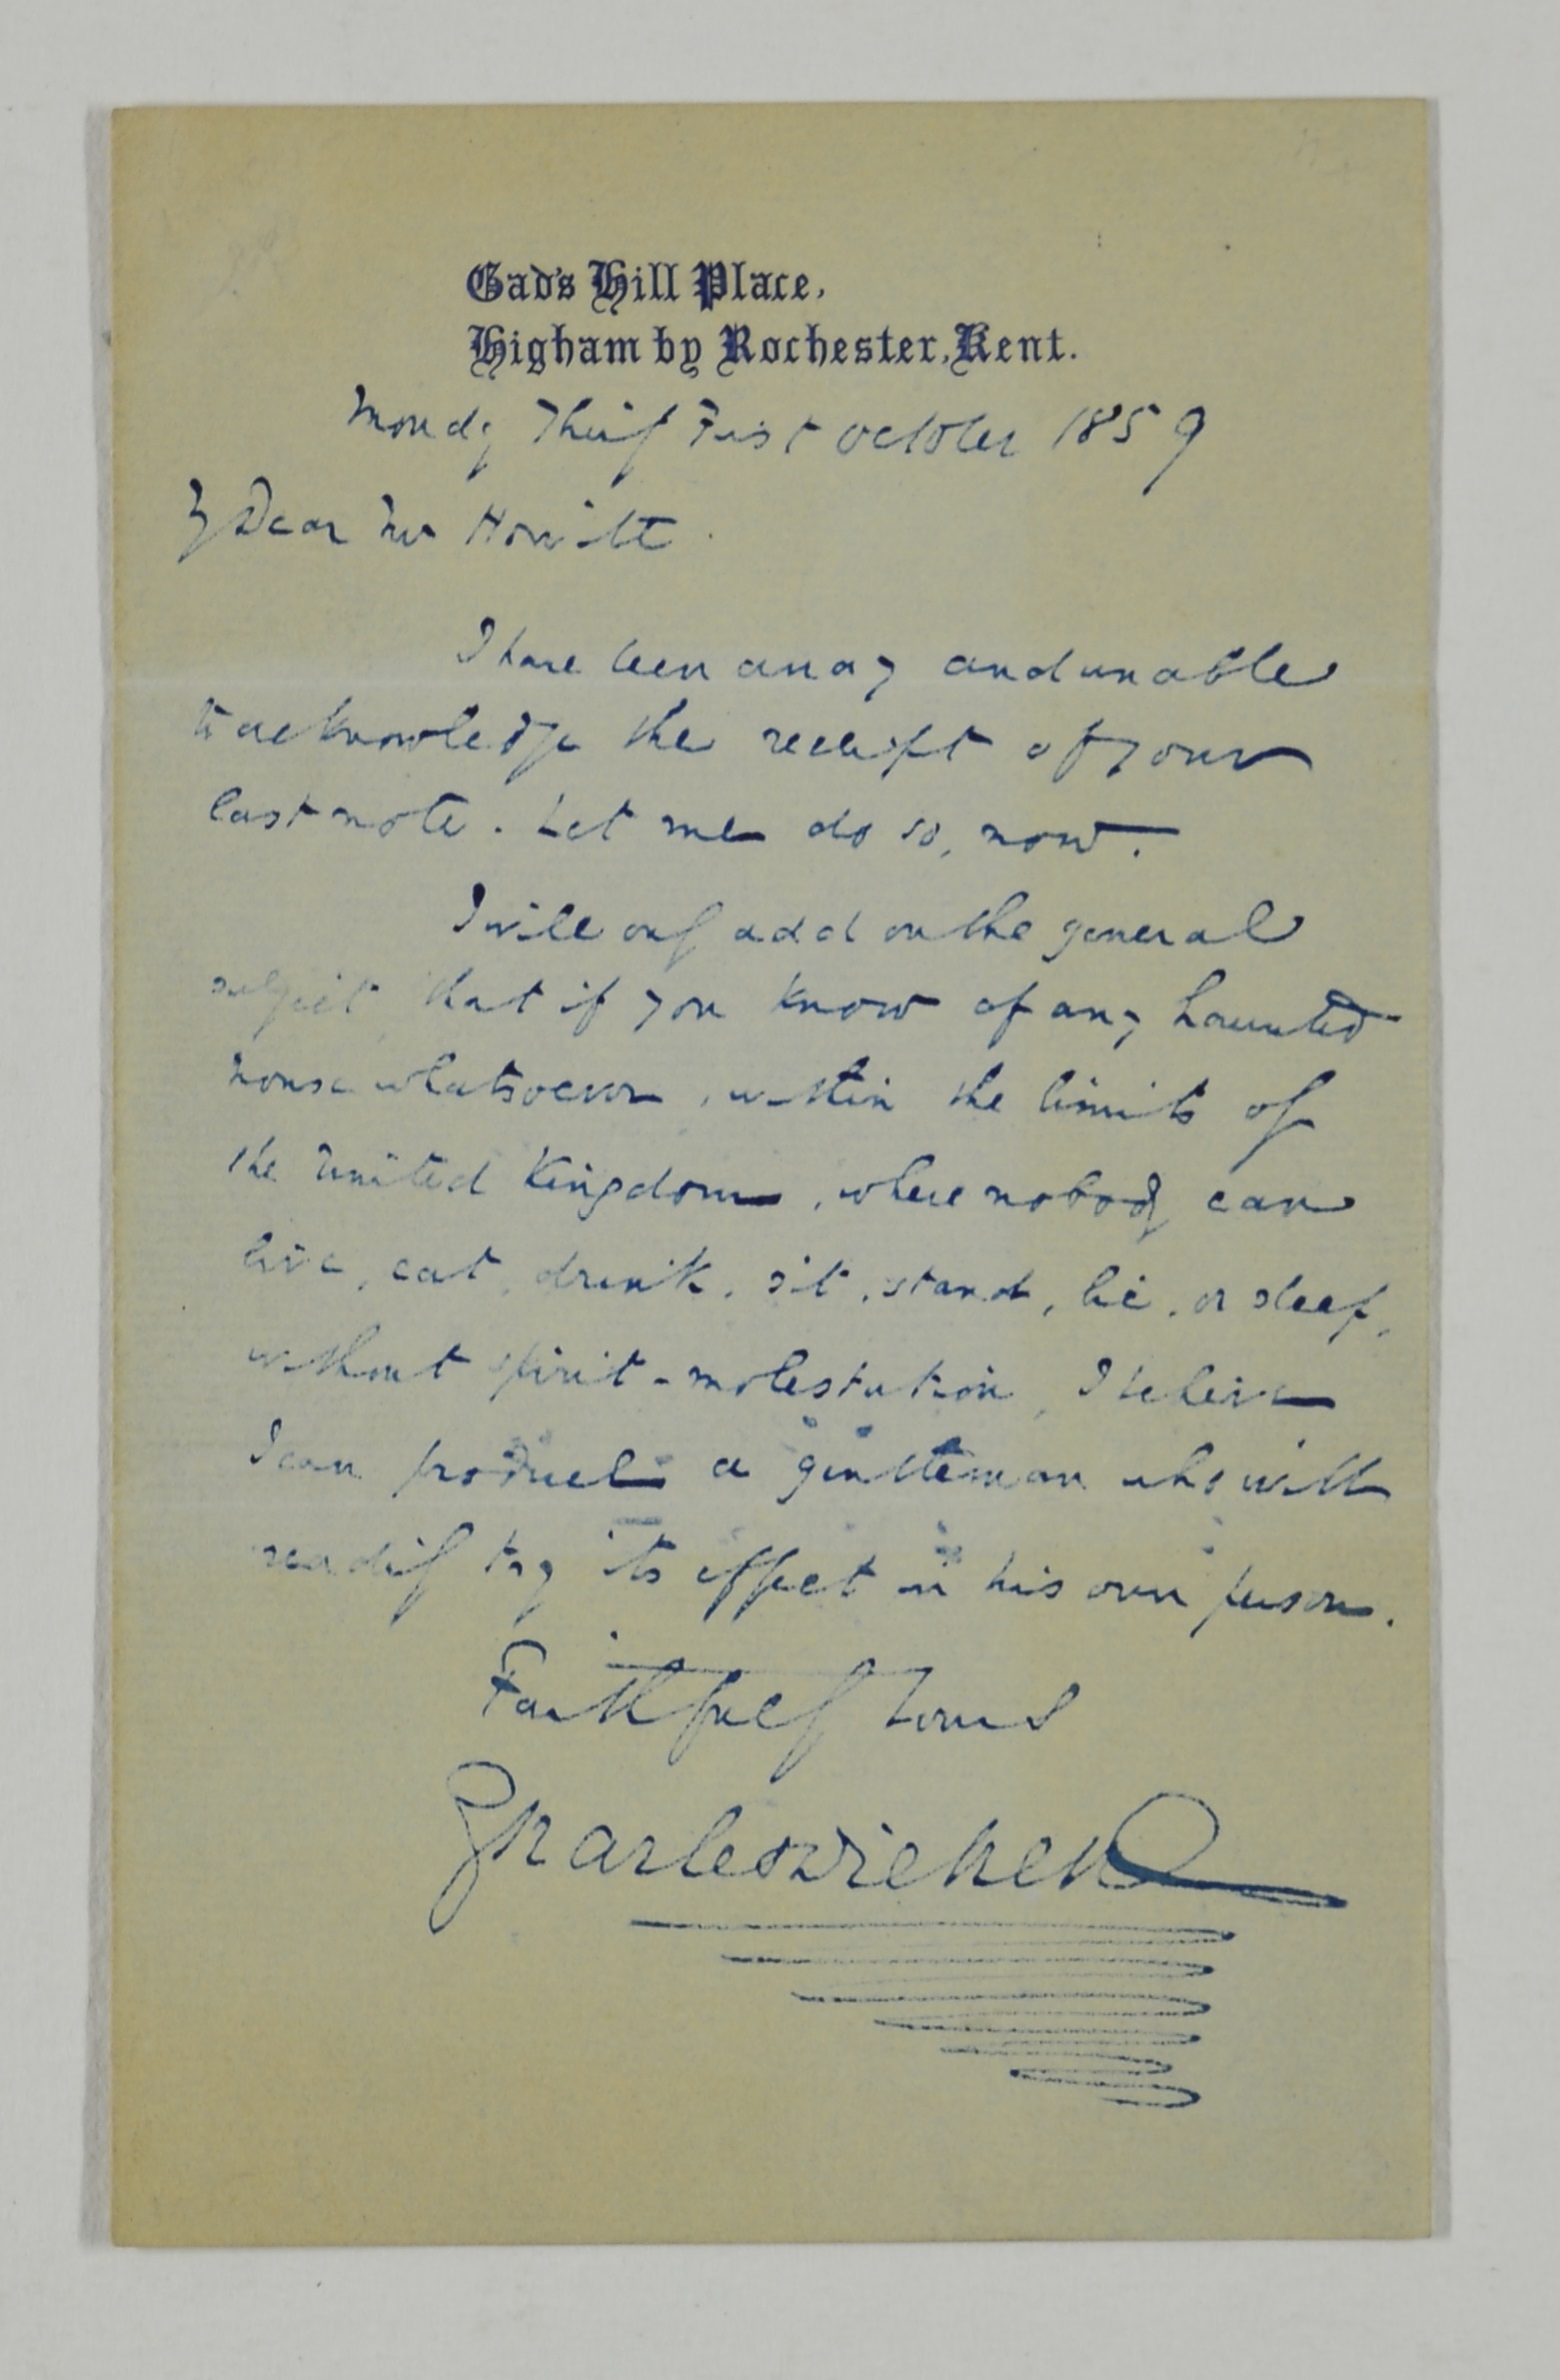 Gad's Hill Place,
Higham by Rochester, Kent.
Monday Thirty First October 1859
My Dear Mr Howitt.
I have been away and unable
to acknowledge the receipt of your
last note. Let me do so, now.
I will only add on the general
subject, that if you know of any haunted
house whatsoever, within the limits of
the United Kingdom, where nobody can
live, eat, drink, sit, stand, lie, or sleep,
without spirit-molestation, I believe
I can produce a gentleman who will
readily try its effect in his own person.
Faithfully Yours
Charles Dickens